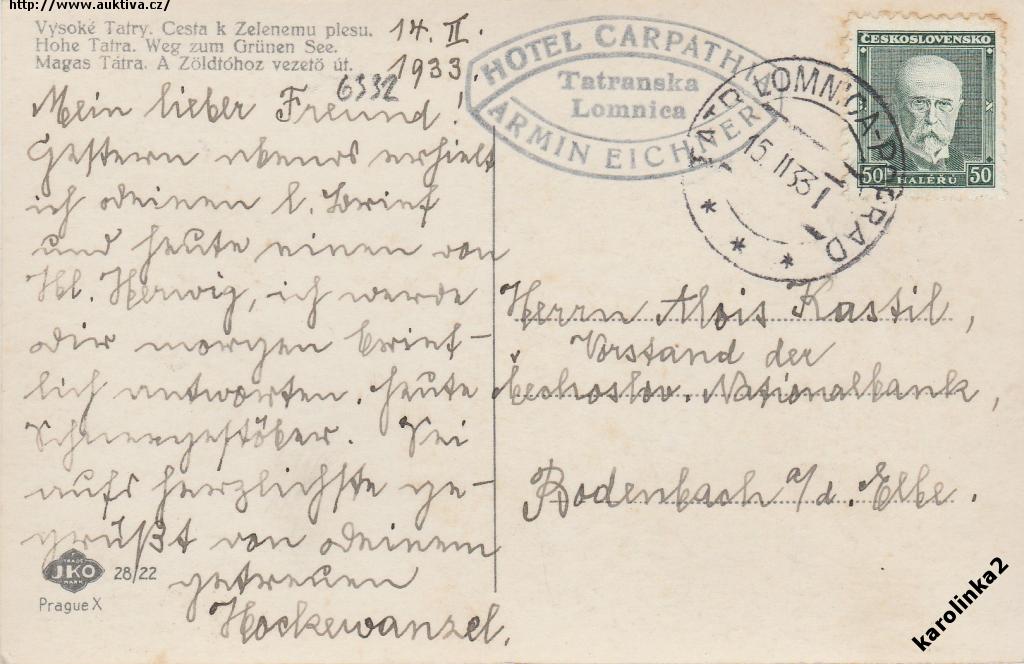 http://www.auktiva.cz/
Vysoké Tatry. Cesta k Zelenemu plesu.
Hohe Tatra. Weg zum Grünen See.
Magas Tátra. A Zöldtóhoz vezető út.
14. II.
1933.
6332
Mein lieber Freund!
Gestern abends erhielt
ich deinen l. Brief
und heute einen von
Hl. Herwig, ich werde
dir morgen brief-
lich antworten. Heute
Schneegestöber. Sei
aufs herzlichste ge-
grüßt von deinem
getreuen
Hockewanzel.
HOTEL CARPATHIA
Tatranska
Lomnica
ARMIN EICHNER
TATR. LOMNICA-POPRAD
15. II 33
ČESKOSLOVENSKO
50 HALÉŘŮ 50
Herrn Alois Kastil,
Vorstand der
čechoslov. Nationalbank,
Bodenbach a/d. Elbe.
TRADE
JKO
MARK
28/22
Prague X
karolinka2